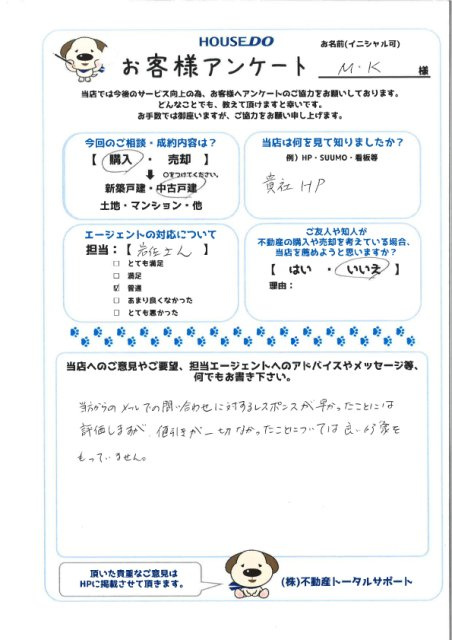 HOUSE DO
お名前(イニシャル可)
お客様アンケート
M.K 様
当店では今後のサービス向上の為、お客様へアンケートのご協力をお願いしております。
どんなことでも、教えて頂けますと幸いです。
お手数では御座いますが、ご協力をお願い申し上げます。
今回のご相談・成約内容は?
【 購入 ・ 売却 】
○をつけてください。
新築戸建・中古戸建
土地・マンション・他
当店は何を見て知りましたか?
例) HP・SUUMO・看板等
貴社HP
エージェントの対応について
担当:【 岩佐さん 】
□ とても満足
□ 満足
☑ 普通
□ あまり良くなかった
□ とても悪かった
ご友人や知人が
不動産の購入や売却を考えている場合、
当店を薦めようと思いますか?
【 はい ・ いいえ 】
理由:
当店へのご意見やご要望、担当エージェントへのアドバイスやメッセージ等、
何でもお書き下さい。
当方からのメールでの問い合わせに対するレスポンスが早かったことには
評価しますが、値引きが一切なかったことについては良い印象を
もっていません。
頂いた貴重なご意見は
HPに掲載させて頂きます。
(株)不動産トータルサポート